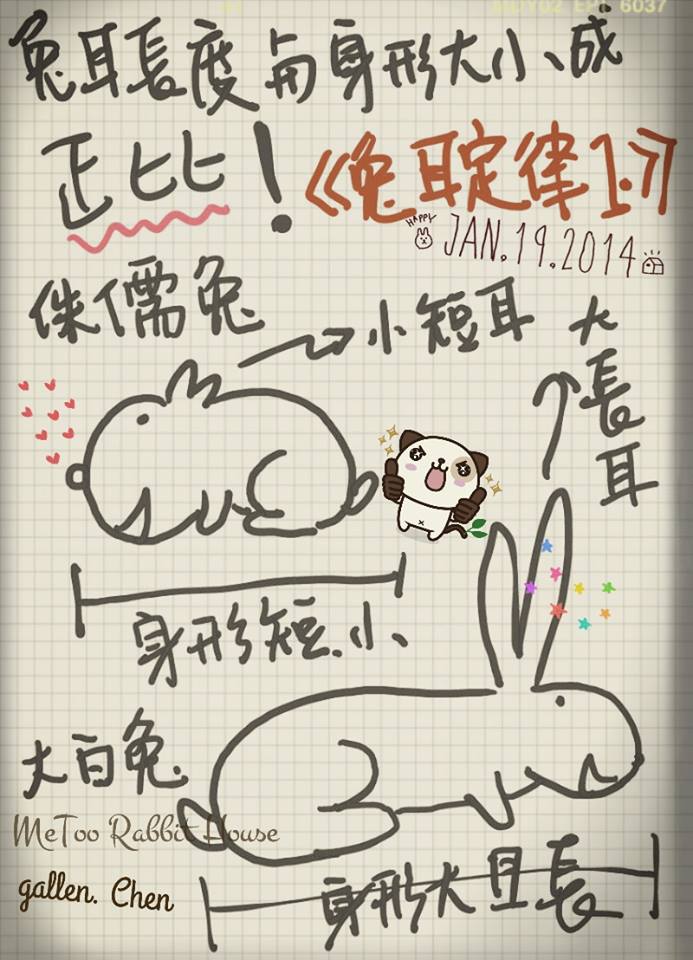 兔耳長度与身形大小、成
正比！《兔耳定律1.7》
HAPPY
JAN.19.2014
侏儒兔
小短耳
大長耳
身形短.小、
大白兔
MeToo Rabbit House
gallen. Chen
身形大且長